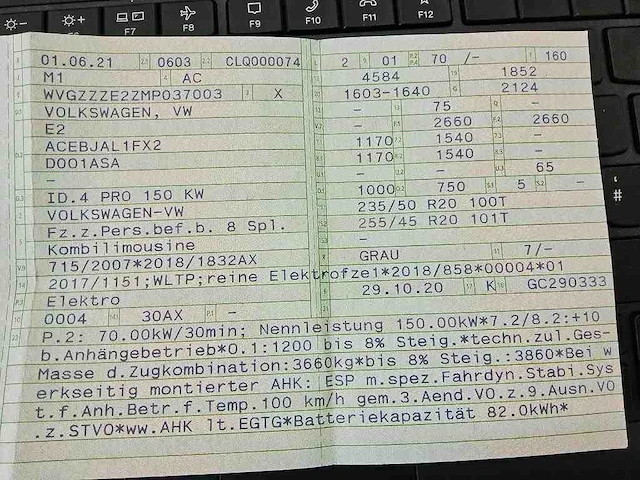 F6 F7 F8 F9 F10 F11 F12
01.06.21 0603 CLQ000074 2 01 70 /- 160
M1 AC 4584 1852
WVGZZZE2ZMP037003 X 1603-1640 2124
VOLKSWAGEN, VW - 75 -
E2 - 2660 2660
ACEBJAL1FX2 1170 1540 -
D001ASA 1170 1540 -
- - - 65
ID.4 PRO 150 KW 1000 750 5 -
VOLKSWAGEN-VW 235/50 R20 100T
Fz.z.Pers.bef.b. 8 Spl. 255/45 R20 101T
Kombilimousine -
715/2007*2018/1832AX GRAU 7/-
2017/1151;WLTP;reine Elektrofze1*2018/858*00004*01
Elektro 29.10.20 K GC290333
0004 30AX -
P.2: 70.00kW/30min; Nennleistung 150.00kW*7.2/8.2:+10
b.Anhängebetrieb*0.1:1200 bis 8% Steig.*techn.zul.Ges-
Masse d.Zugkombination:3660kg*bis 8% Steig.:3860*Bei w
erkseitig montierter AHK: ESP m.spez.Fahrdyn.Stabi.Sys
t.f.Anh.Betr.f.Temp.100 km/h gem.3.Aend.VO.z.9.Ausn.VO
.z.STVO*ww.AHK lt.EGTG*Batteriekapazität 82.0kWh*
#